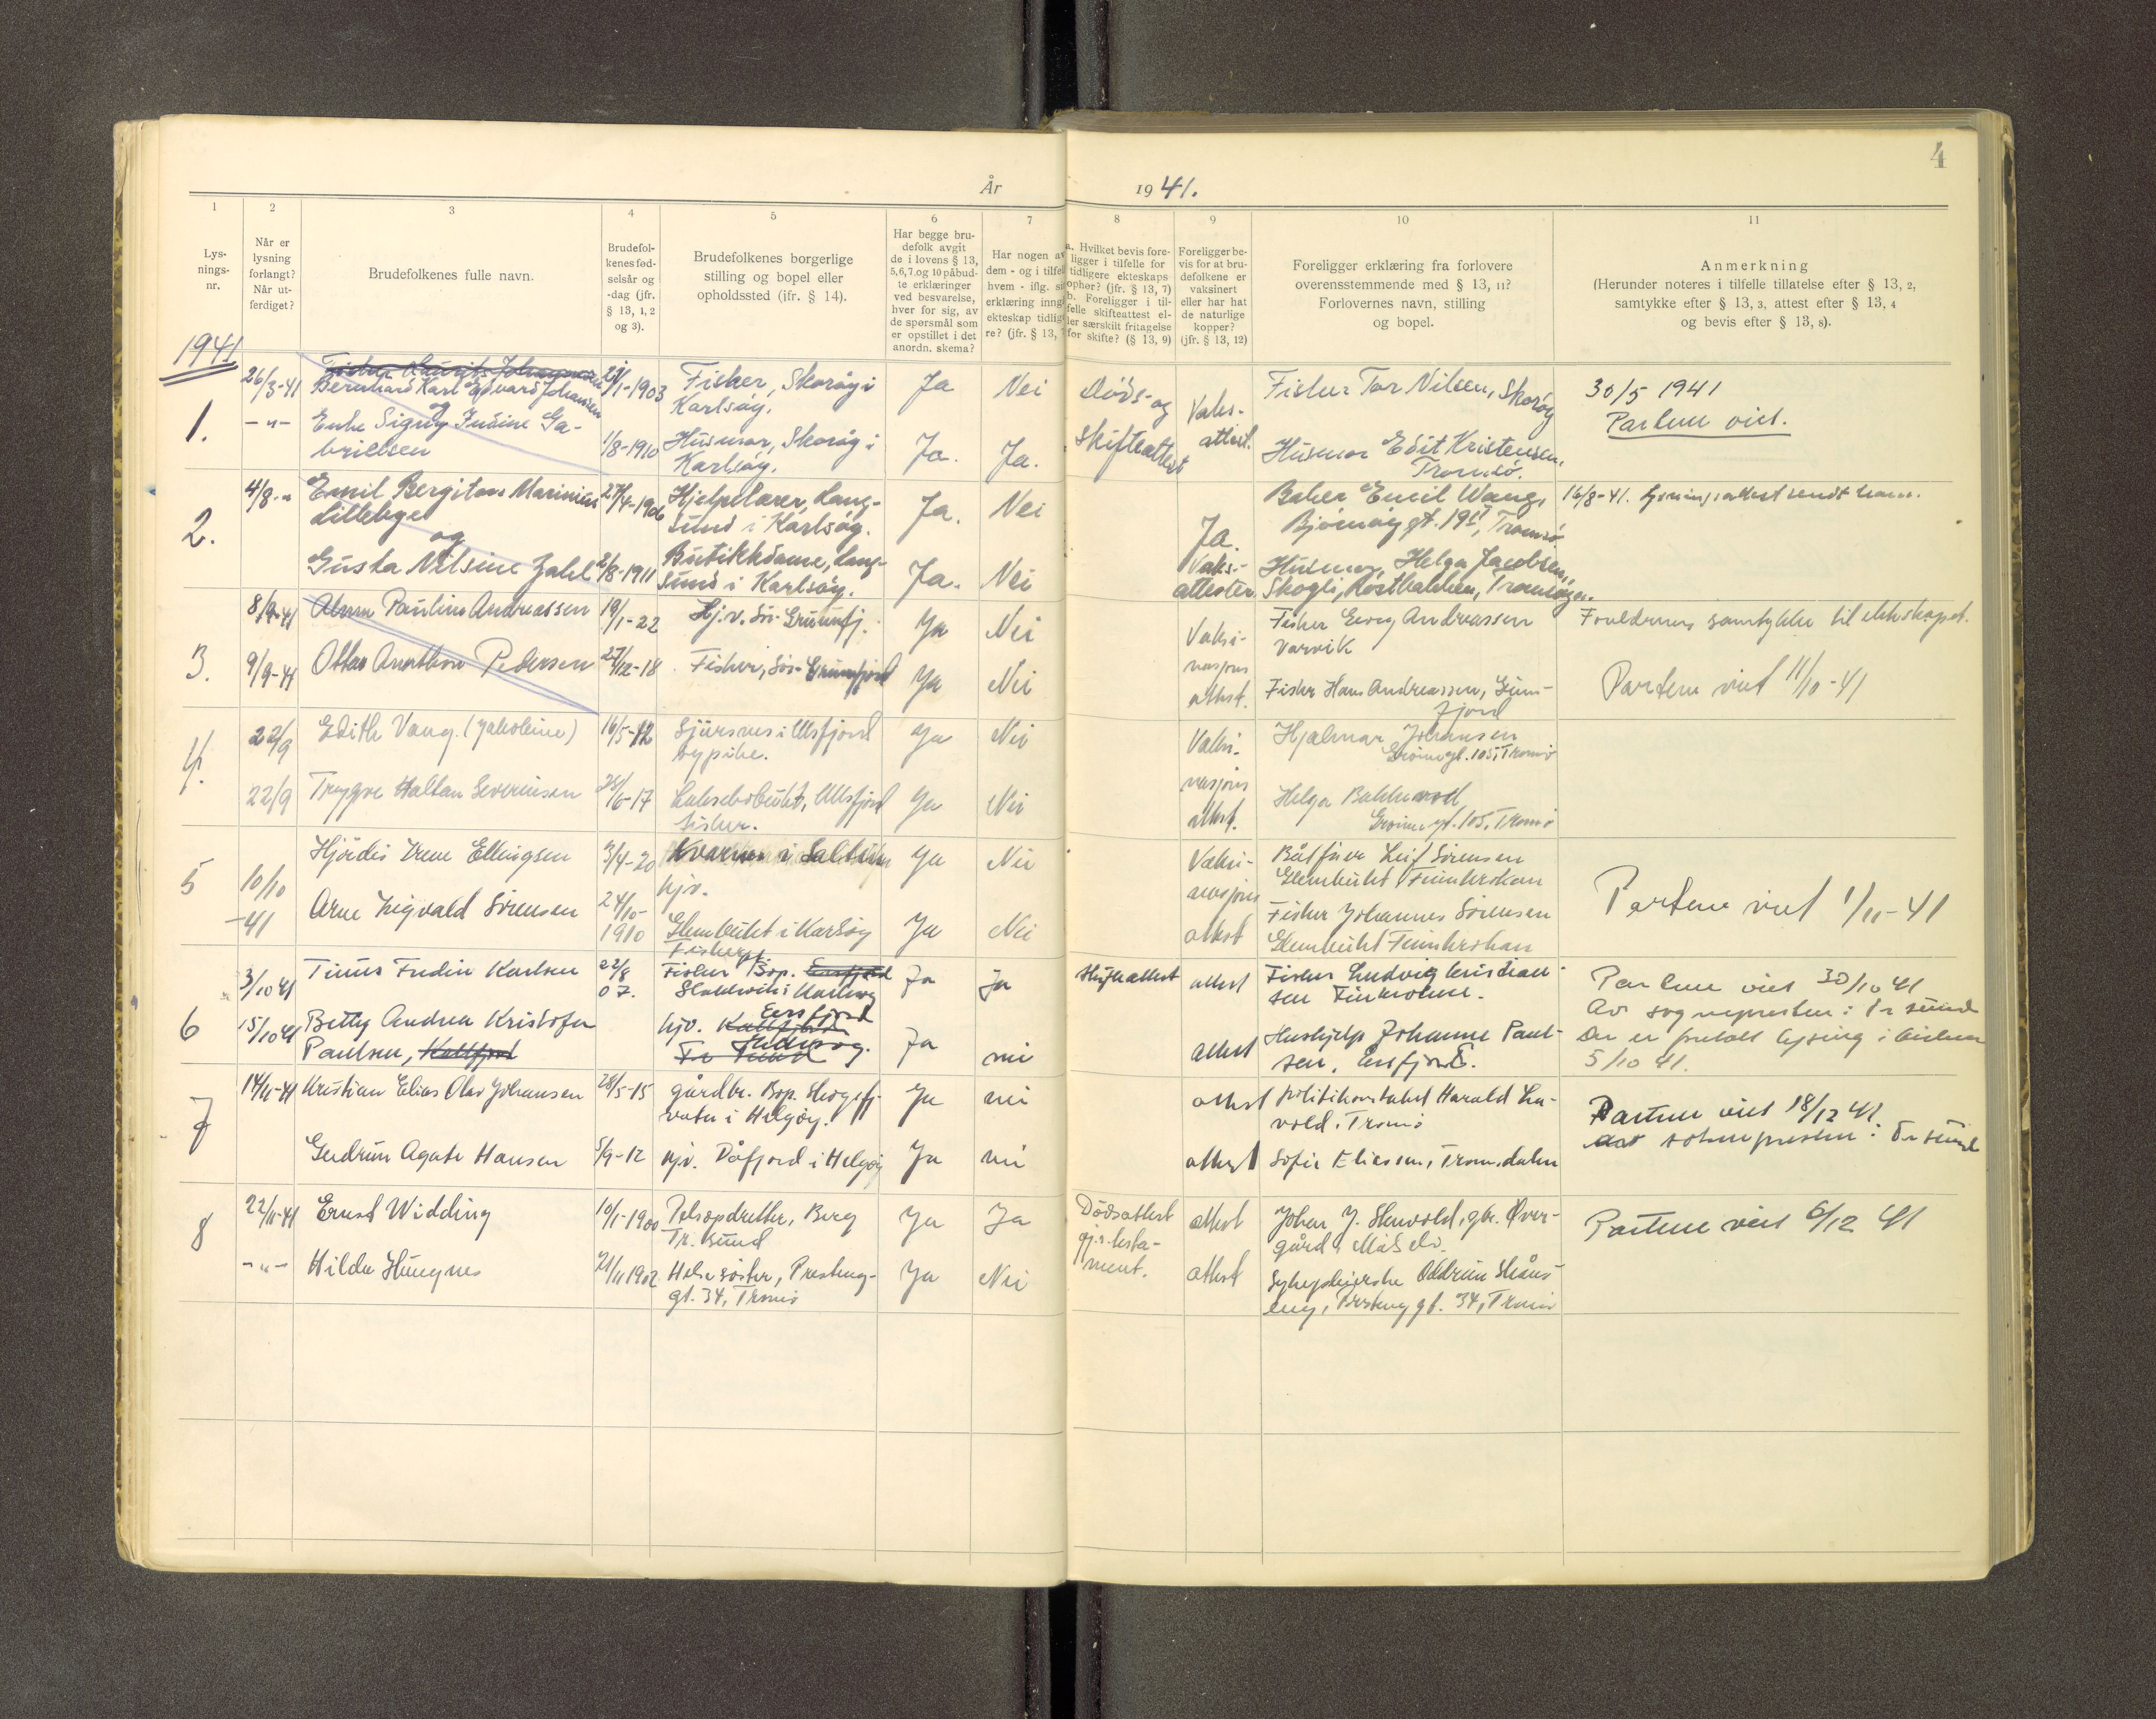 4
År 1941.
1
2
3
4
5
6
7
8
9
10
11
Lys-
nings-
nr.
Når er
lysning
forlangt?
Når ut-
ferdiget?
Brudefolkenes fulle navn.
Brudefol-
kenes fød-
selsår og
-dag (jfr.
§ 13, 1, 2
og 3).
Brudefolkenes borgerlige
stilling og bopel eller
opholdssted (jfr. § 14).
Har begge bru-
defolk avgit
de i lovens § 13,
5,6,7.og 10 påbud-
te erklæringer
ved besvarelse,
hver for sig, av
de spørsmål som
er opstillet i det
anordn. skema?
Har nogen av
dem - og i tilfel
hvem - iflg. si
erklæring inng
ekteskap tidlig
re? (jfr. § 13, 7
a. Hvilket bevis fore-
ligger i tilfelle for
tidligere ekteskaps
ophør? (jfr. § 13, 7)
b. Foreligger i til-
felle skifteattest el-
ler særskilt fritagelse
for skifte? (§ 13, 9)
Foreligger be-
vis for at bru-
defolkene er
vaksinert
eller har hat
de naturlige
kopper?
(jfr. § 13, 12)
Foreligger erklæring fra forlovere
overensstemmende med § 13, 11?
Forlovernes navn, stilling
og bopel.
Anmerkning
(Herunder noteres i tilfelle tillatelse efter § 13, 2,
samtykke efter § 13, 3, attest efter § 13, 4
og bevis efter § 13, 8).
1941
1.
26/3-41
Bernhard Karl Edvard Johansen
og
/1-1903
Fisker, Skorøy i
Karlsøy.
Ja
Nei
Døds- og
skifteattest
Vaks-
attest.
Fisker Tor Nilsen, Skorøy
30/5 1941
Partene viet.
-"-
Enke Signy Indine Ga-
brielsen
1/8-1910
Husmor, Skorøy i
Karlsøy.
Ja.
Ja.
Husmor Edit Kristensen,
Tromsø.
2.
4/8 -"
Emil Bergitons Marinius
Lillebye
og
27/4-1906
Hjelpelærer, Lang-
sund i Karlsøy.
Ja.
Nei
Ja.
Vaks.-
attester
Baker Emil Wang,
Bjørnøy gt. 19 II, Tromsø
16/8-41. Lysningsattest sendt ham.
Gusta Nilsine Zahl
/8-1911
Butikkdame, Lang-
sund i Karlsøy.
Ja.
Nei
Husmor Helga Jacobsen,
Skogli, Tromsøya.
3.
8/9-41
Alma Pauline Andreassen
19/1-22
Hj.v. Sør-Grunnfj.
Ja
Nei
Vaksi-
nasjons
attest.
Fisker Georg Andreassen
Varvik
Foreldrenes samtykke til ekteskapet.
9/9-41
Ottar Annthon Pedersen
27/12-18
Fisker, Sør-Grunnfjord
Ja
Nei
Fisker Hans Andreassen, Grunn-
fjord
Partene viet 11/10-41
4.
22/9
Edith Vang. (Jakobine)
16/5-12
Sjursnes i Ullsfjord
sypike.
Ja
Nei
Vaksi-
nasjons
attest.
Hjalmar Johansen
Grønnegt. 105, Tromsø
22/9
Trygve Haltan Severinsen
/6-17
Laksebobukt, Ullsfjord
fisker.
Ja
Nei
Helga Bakkevold
Grønnegt. 105, Tromsø
5
10/10
-41
Hjørdis Irene Ellingsen
3/4-20
Kvarnes i Saltdalen
hjv.
Ja
Nei
Vaksi-
nasjons
attest
Båtfører Leif Sørensen
Glembukt Finnkroken
Arne Sigvald Sørensen
24/10-
1910
Glembukt i Karlsøy
Fisker
Ja
Nei
Fisker Johannes Sørensen
Glembukt Finnkroken
Partene viet 1/11-41
6
3/10 41
Tinus Fredin Karlsen
22/8
07.
Fisker Bop. Ersfjord
i Karlsøy
Ja
Ja
Skifteattest
attest
Fisker Ludvig Kristian-
sen Finkroken.
Partene viet 30/10 41
Av sognepresten i Tr sund
Der er foretatt lysing i kirken
5/10 41.
15/10 41
Betty Andrea Kristofa
Paulsen, Kattfjord
hjv. Kattfjord
Ersfjord
Tr sund
Ja
nei
attest
Hushjelp Johanne Paul-
sen, Ersfjord.
7
14/11-41
Kristian Elias Olav Johansen
28/5-15
gårdbr. Bop. Skogsfj.
vatn i Helgøy.
Ja
nei
attest
politikonstabel Harald La-
vold, Tromsø
Partene viet 18/12 41
av soknepresten i Tr sund
Gudrun Agate Hansen
5/9-12
hjv. Dåfjord i Helgøy
Ja
nei
attest
Sofie Eliassen, Tromsdalen
8
22/11-41
Ernst Widding
10/1-1900
Pelsopdretter, Berg
Tr. sund
Ja
Ja
Dødsattest
gj. testa-
ment.
attest
Johan J. Stenvold, gbr. Øver-
gård, Målselv.
Partene viet 6/12 41
-"-
Hilda Haugnes
21/11 1902
Helsesøster, Presteng-
gt. 34, Tromsø
Ja
Nei
attest
Sykepleierske Oddrun Skåns-
eng, Presteng gt. 34, Tromsø